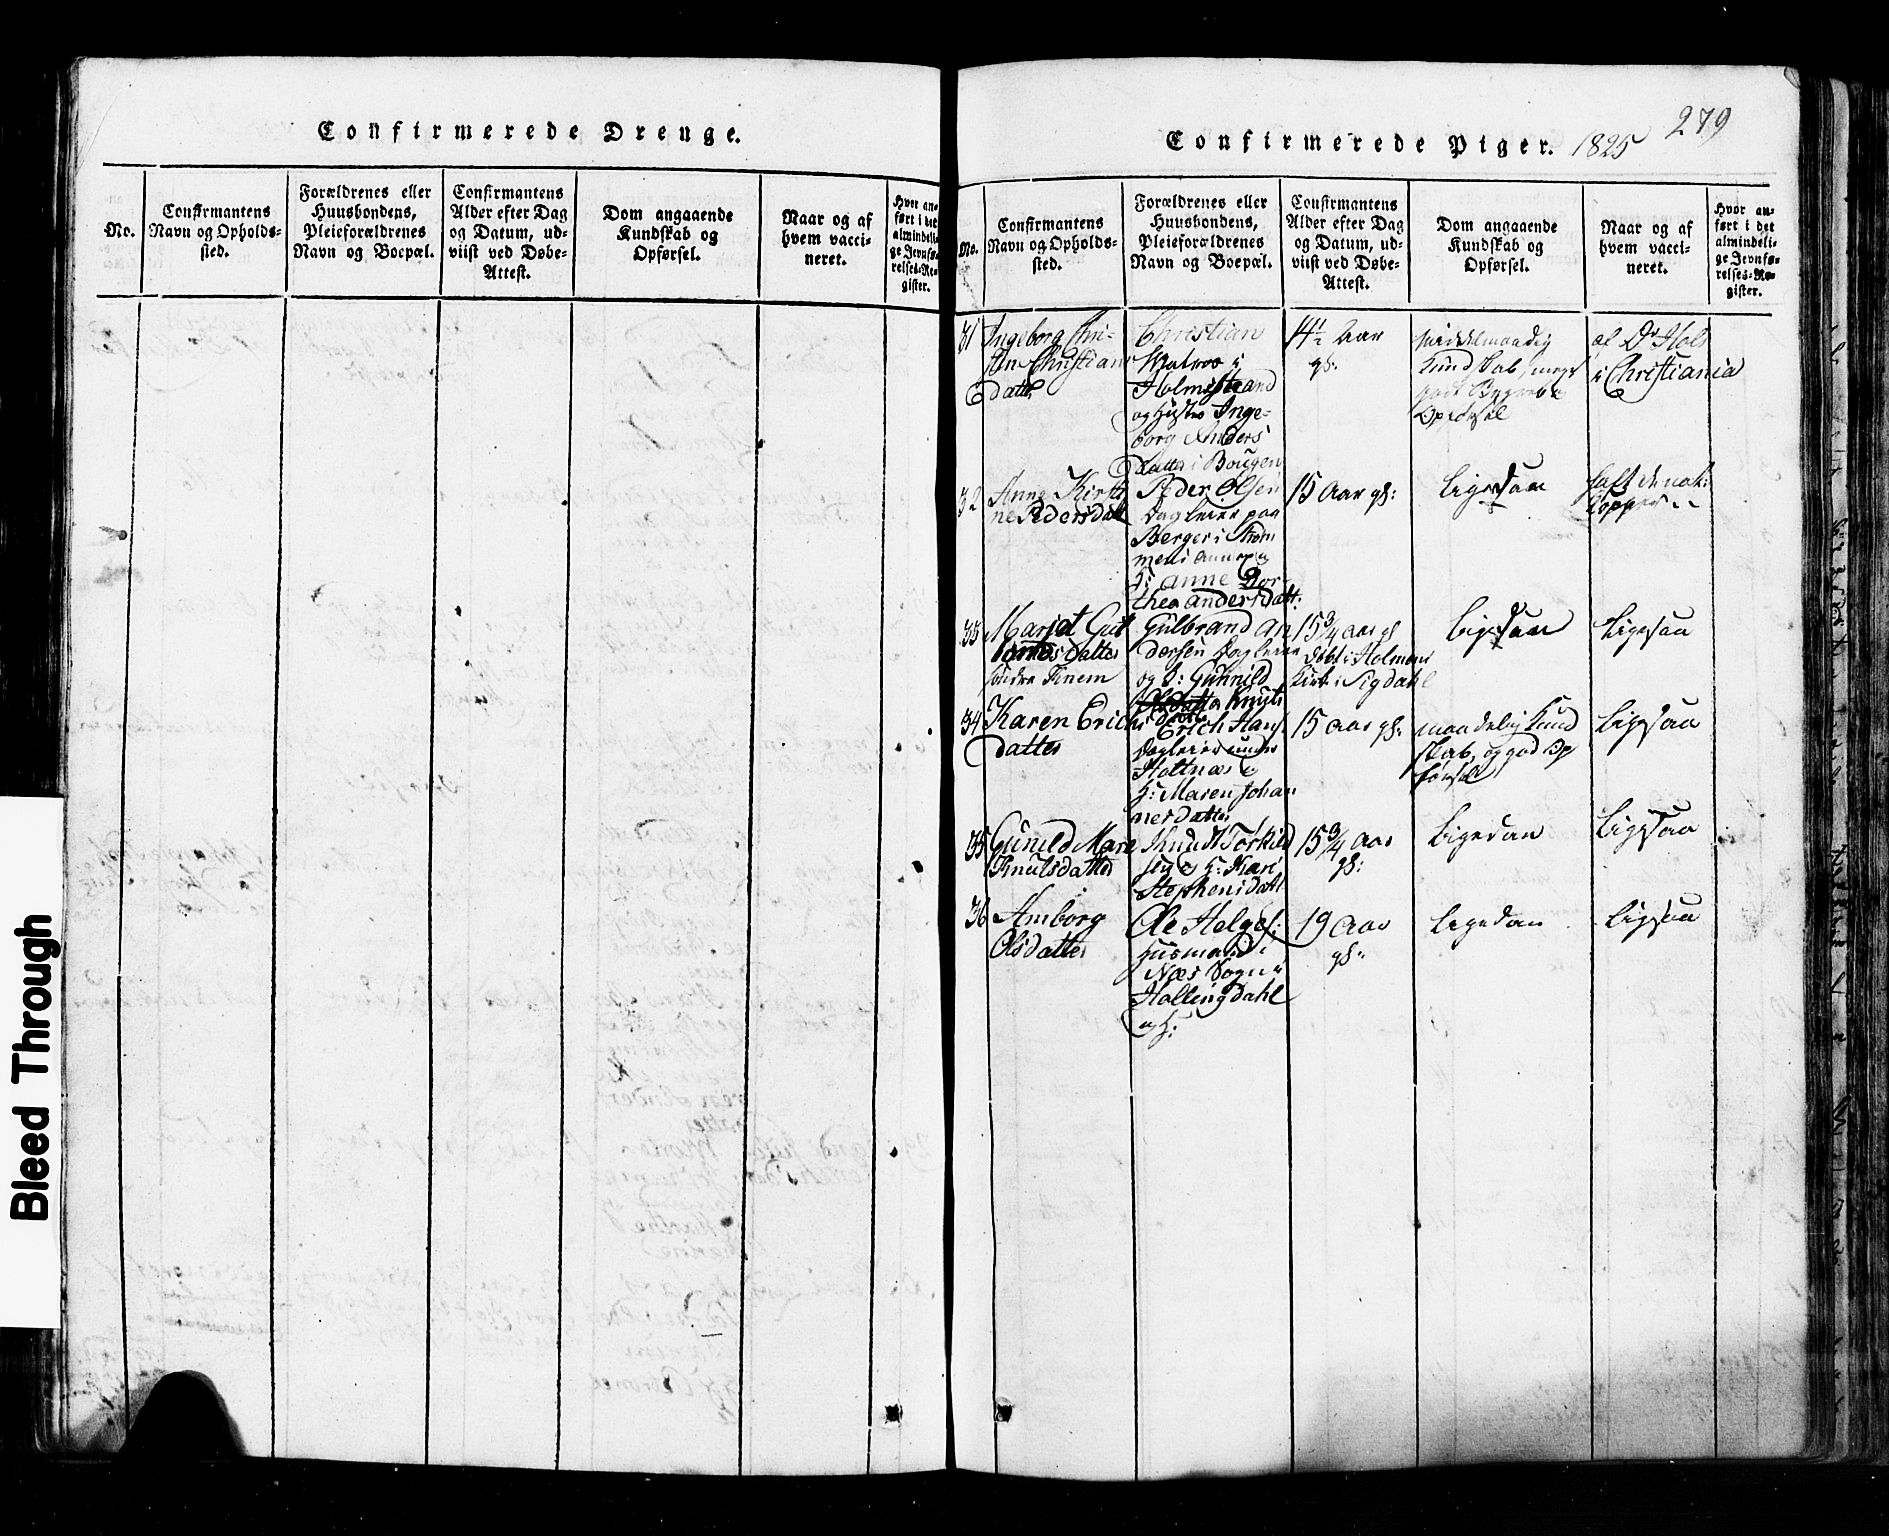 Confirmerede Drenge.
No.
Confirmantens
Navn og Opholds-
sted.
Forældrenes eller
Huusbondens,
Pleieforældrenes
Navn og Boepæl.
Confirmantens
Alder efter Dag
og Datum, ud-
viist ved Døbe-
Attest.
Dom angaaende
Kundskab og
Opførsel.
Naar og af
hvem vacci-
neret.
Hvor an-
ført i det
almindeli-
ge Jevnfø-
relses-Re-
gister.
Confirmerede Piger. 1825
279
No.
Confirmantens
Navn og Opholds-
sted.
Forældrenes eller
Huusbondens,
Pleieforældrenes
Navn og Boepæl.
Confirmantens
Alder efter Dag
og Datum, ud-
viist ved Døbe-
Attest.
Dom angaaende
Kundskab og
Opførsel.
Naar og af
hvem vacci-
neret.
Hvor an-
ført i det
almindeli-
ge Jevnfø-
relses-Re-
gister.
31
Ingeborg Chri-
stin Christians
datter
Christian
Matros i
Holmestrand
og Hustro Inge-
borg Anders
datter i
14½ Aar
gl:
Middelmaadig
Kundskab, meget
godt
Opførsel
af Dr Hols
i Christiania
32
Anne Kirsti
ne Pedersdatt
Peder Olsen
Dagleier paa
Berger i Strøm
men
H: Anne Dor-
thea Andersdatt:
15 Aar gl:
Ligesaa
haft de nat:
Kopper
33
Marjet Gul
datter
Gulbrand An
dersen Dagleier
og H: Gunnild
Knuts
datter
15 3/4 Aar gl
døbt i Holmens
Kirke i Sigdahl
Ligesaa
Ligesaa
34
Karen Erichs
datter
Erich Hans
Dagleier under
Holtnæs
H: Maren Johan
nesdatter
15 Aar gl:
maadelig Kund
skab, og god Op
førsel
Ligesaa
35
Gunild Marie
Knutsdatter
Knudt Torkild
sen H: Kari
Stephensdatt
15 3/4 Aar
gl:
Ligedan
Ligesaa
36
Amborg
Olsdatter
Ole Helges:
Husmand i
Næs Sogn i
Hollingdahl
og H:
19 Aar
gl:
Ligedan
Ligesaa
Bleed Through